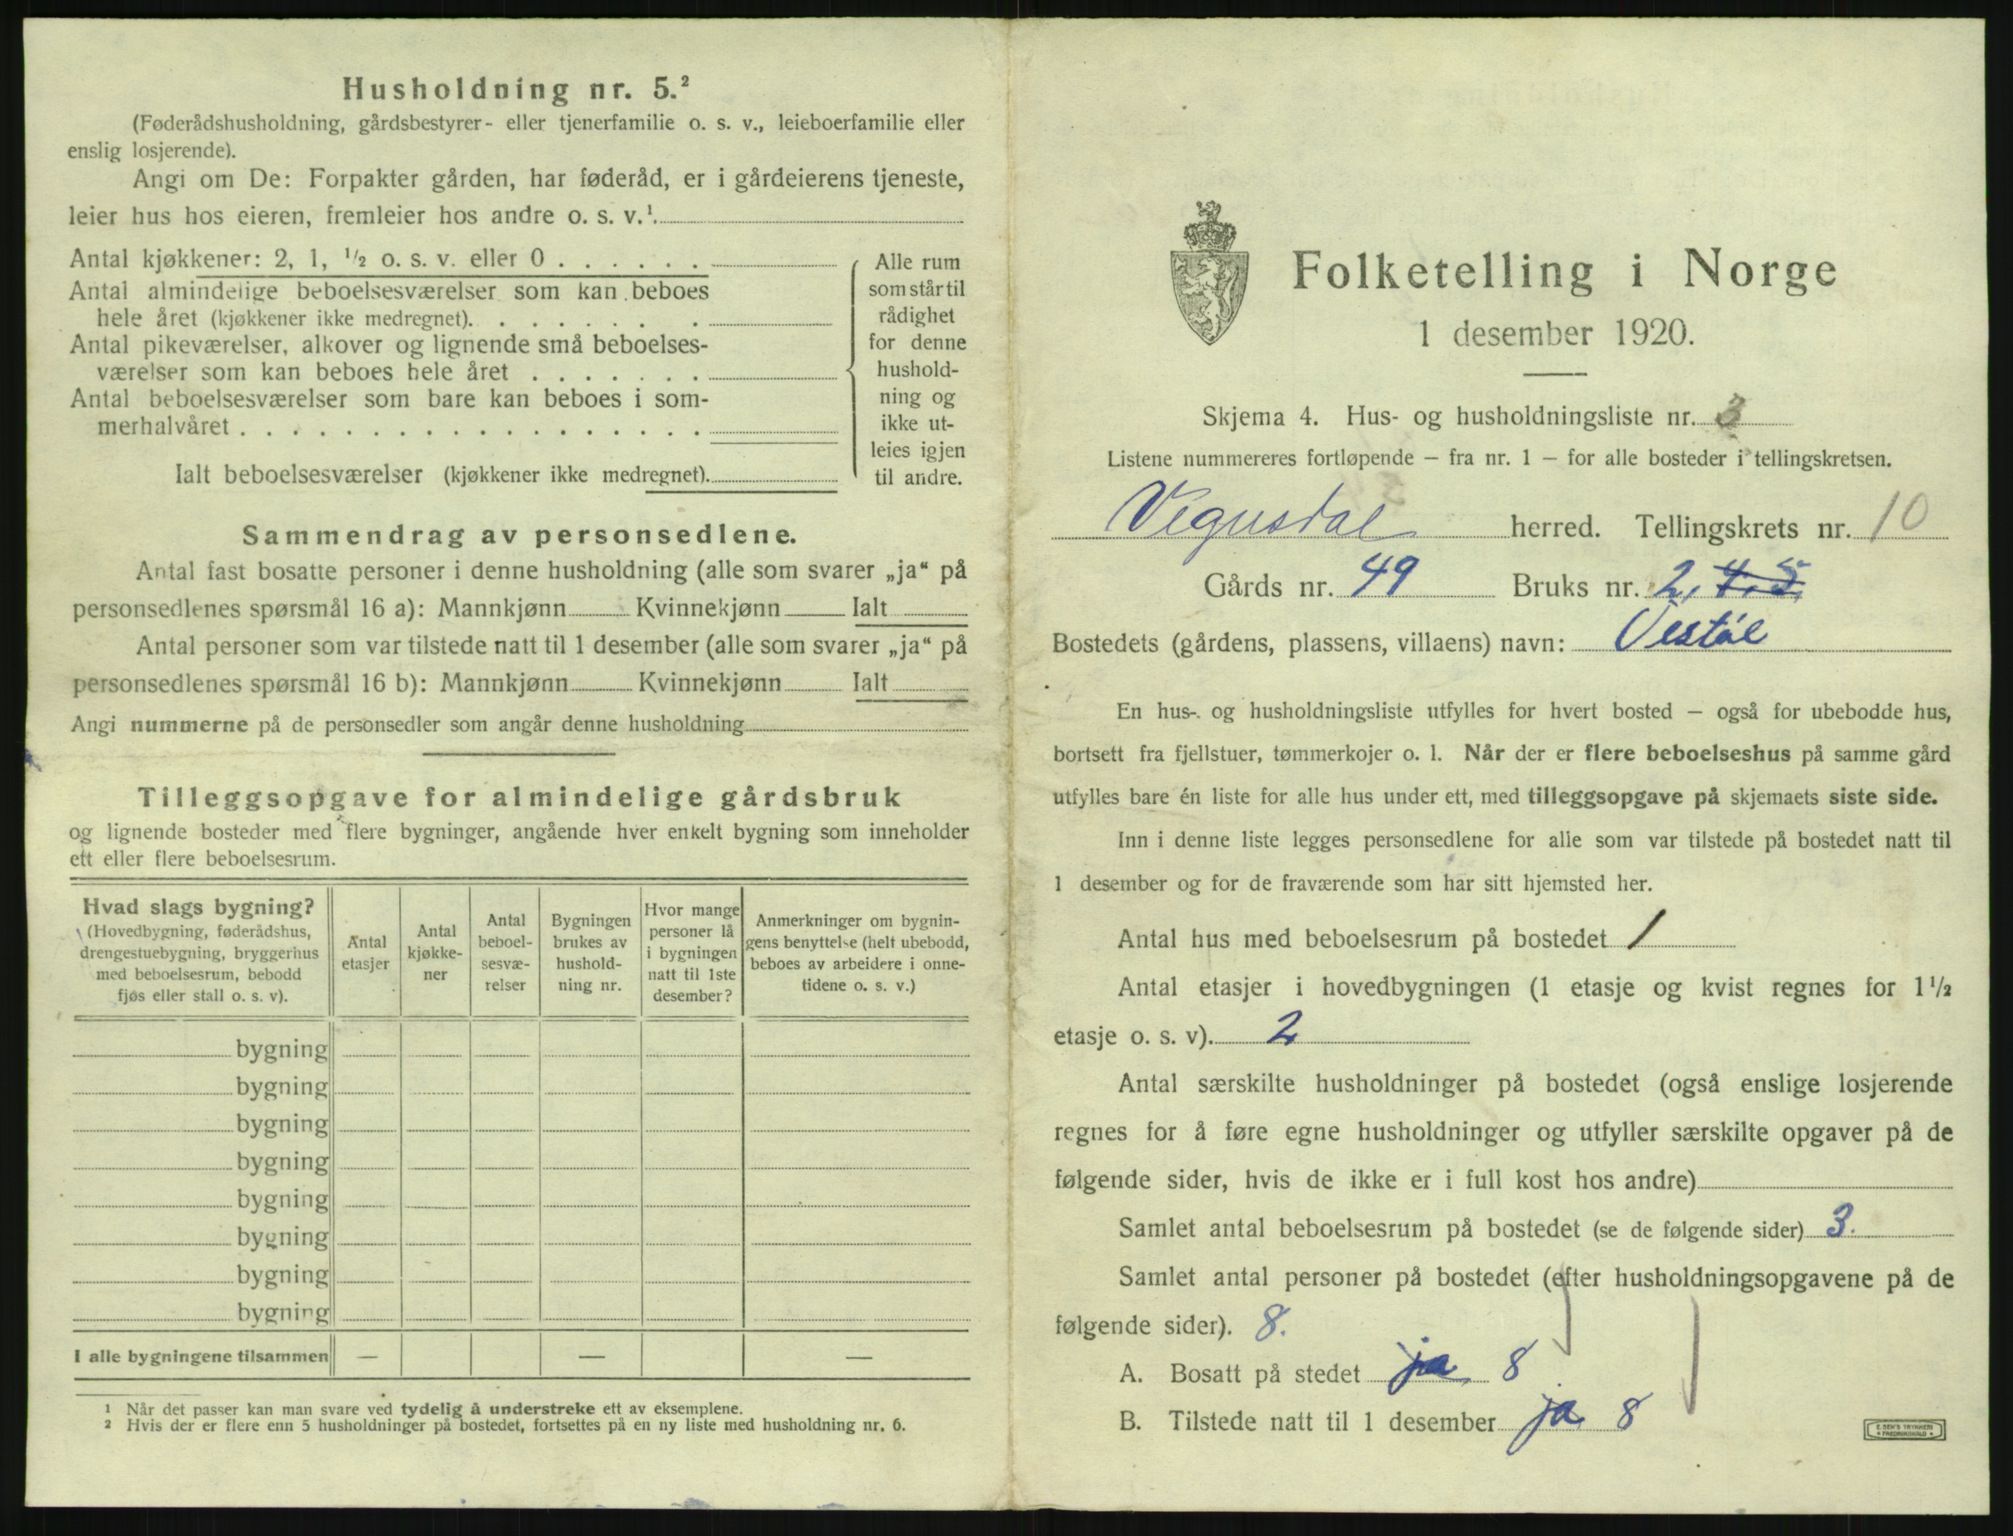 Husholdning nr. 5.²
(Føderådshusholdning, gårdsbestyrer- eller tjenerfamilie o. s. v., leieboerfamilie eller
enslig losjerende).
Angi om De: Forpakter gården, har føderåd, er i gårdeierens tjeneste,
leier hus hos eieren, fremleier hos andre o. s. v.¹
Antal kjøkkener: 2, 1, ½ o. s. v. eller 0
Antal almindelige beboelsesværelser som kan beboes
hele året (kjøkkener ikke medregnet).
Antal pikeværelser, alkover og lignende små beboelses-
værelser som kan beboes hele året
Antal beboelsesværelser som bare kan beboes i som-
merhalvåret
Ialt beboelsesværelser (kjøkkener ikke medregnet).
Alle rum
som står til
rådighet
for denne
hushold-
ning og
ikke ut-
leies igjen
til andre.
Sammendrag av personsedlene.
Antal fast bosatte personer i denne husholdning (alle som svarer „ja“ på
personsedlenes spørsmål 16 a): Mannkjønn Kvinnekjønn Ialt
Antal personer som var tilstede natt til 1 desember (alle som svarer „ja“ på
personsedlenes spørsmål 16 b): Mannkjønn Kvinnekjønn Ialt
Angi nummerne på de personsedler som angår denne husholdning
Tilleggsopgave for almindelige gårdsbruk
og lignende bosteder med flere bygninger, angående hver enkelt bygning som inneholder
ett eller flere beboelsesrum.
Hvad slags bygning?
(Hovedbygning, føderådshus,
drengestuebygning, bryggerhus
med beboelsesrum, bebodd
fjøs eller stall o. s. v).
Antal
etasjer
Antal
kjøkke-
ner
Antal
beboel-
sesvæ-
relser
Bygningen
brukes av
hushold-
ning nr.
Hvor mange
personer lå
i bygningen
natt til 1ste
desember?
Anmerkninger om bygnin-
gens benyttelse (helt ubebodd,
beboes av arbeidere i onne-
tidene o. s. v.)
bygning
bygning
bygning
bygning
bygning
bygning
bygning
bygning
I alle bygningene tilsammen — — —
¹ Når det passer kan man svare ved tydelig å understreke ett av eksemplene.
² Hvis der er flere enn 5 husholdninger på bostedet, fortsettes på en ny liste med husholdning nr. 6.
Folketelling i Norge
1 desember 1920.
Skjema 4. Hus- og husholdningsliste nr. 3
Listene nummereres fortløpende – fra nr. 1 – for alle bosteder i tellingskretsen.
Vegusdal herred. Tellingskrets nr. 10
Gårds nr. 49 Bruks nr. 2, 4, 5
Bostedets (gårdens, plassens, villaens) navn: Vestøl
En hus- og husholdningsliste utfylles for hvert bosted – også for ubebodde hus,
bortsett fra fjellstuer, tømmerkojer o. l. Når der er flere beboelseshus på samme gård
utfylles bare én liste for alle hus under ett, med tilleggsopgave på skjemaets siste side.
Inn i denne liste legges personsedlene for alle som var tilstede på bostedet natt til
1 desember og for de fraværende som har sitt hjemsted her.
Antal hus med beboelsesrum på bostedet 1
Antal etasjer i hovedbygningen (1 etasje og kvist regnes for 1½
etasje o. s. v). 2
Antal særskilte husholdninger på bostedet (også enslige losjerende
regnes for å føre egne husholdninger og utfyller særskilte opgaver på de
følgende sider, hvis de ikke er i full kost hos andre)
Samlet antal beboelsesrum på bostedet (se de følgende sider) 3.
Samlet antal personer på bostedet (efter husholdningsopgavene på de
følgende sider). 8.
A. Bosatt på stedet ja 8
B. Tilstede natt til 1 desember ja 8